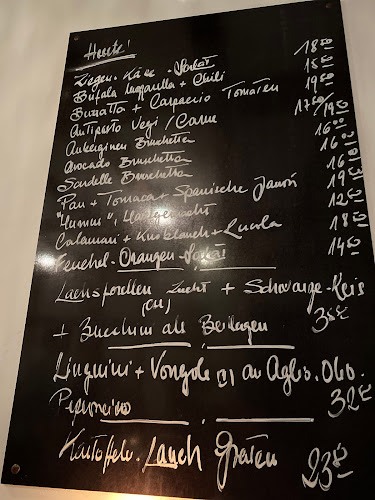 Heute!
Ziegen-Käse-Salat 18.50
Bufala Mozzarella + Chili 15.50
Burratta + Carpaccio Tomaten 19.50
Antipasto Vegi / Carne 17.50/19.50
Auberginen Bruschetta 16.00
Avocado Bruschetta 16.50
Sardelle Bruschetta 16.00
Pan + Tomaca + Spanische Jamón 19.50
"Humus", Hausgemacht 12.50
Calamari + Knoblauch + Rucola 18.50
Fenchel-Orangen-Salat 14.50
Lachsforellen Zucht + Schwarze-Reis
(CH)
+ Zucchini als Beilagen 35.-
Linguini + Vongole (I) an Aglio.Olio.
Peperoncino 32.-
Kartoffeln.Lauch Graten 23.50